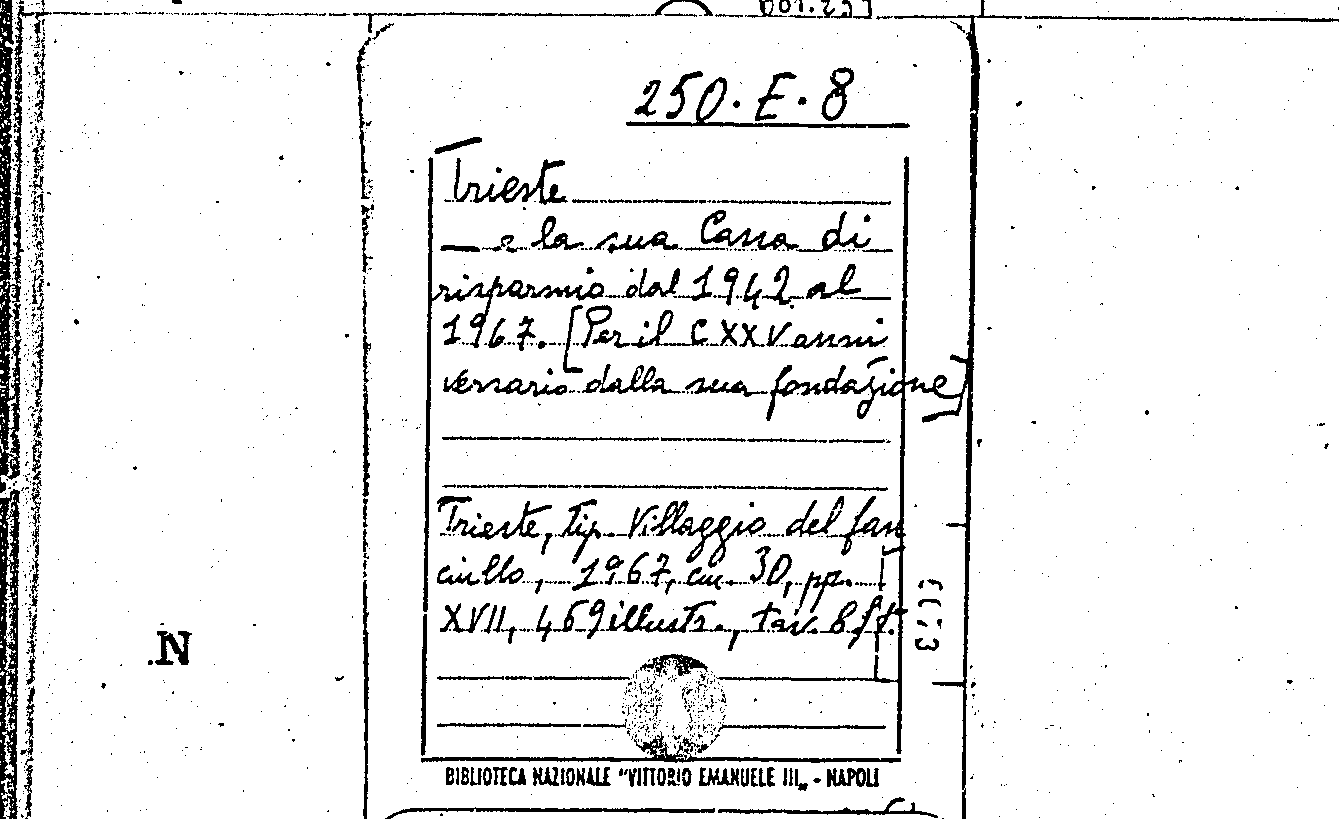 250.E.8
Trieste
— e la sua Cassa di
risparmio dal 1942 al
1967. [Per il CXXV anni
versario dalla sua fondazione]
Trieste, tip. Villaggio del fan
ciullo, 1967, cm. 30, pp.
XVII, 469 illustr., tav. 6 f.t.
N
BIBLIOTECA NAZIONALE "VITTORIO EMANUELE III„ - NAPOLI